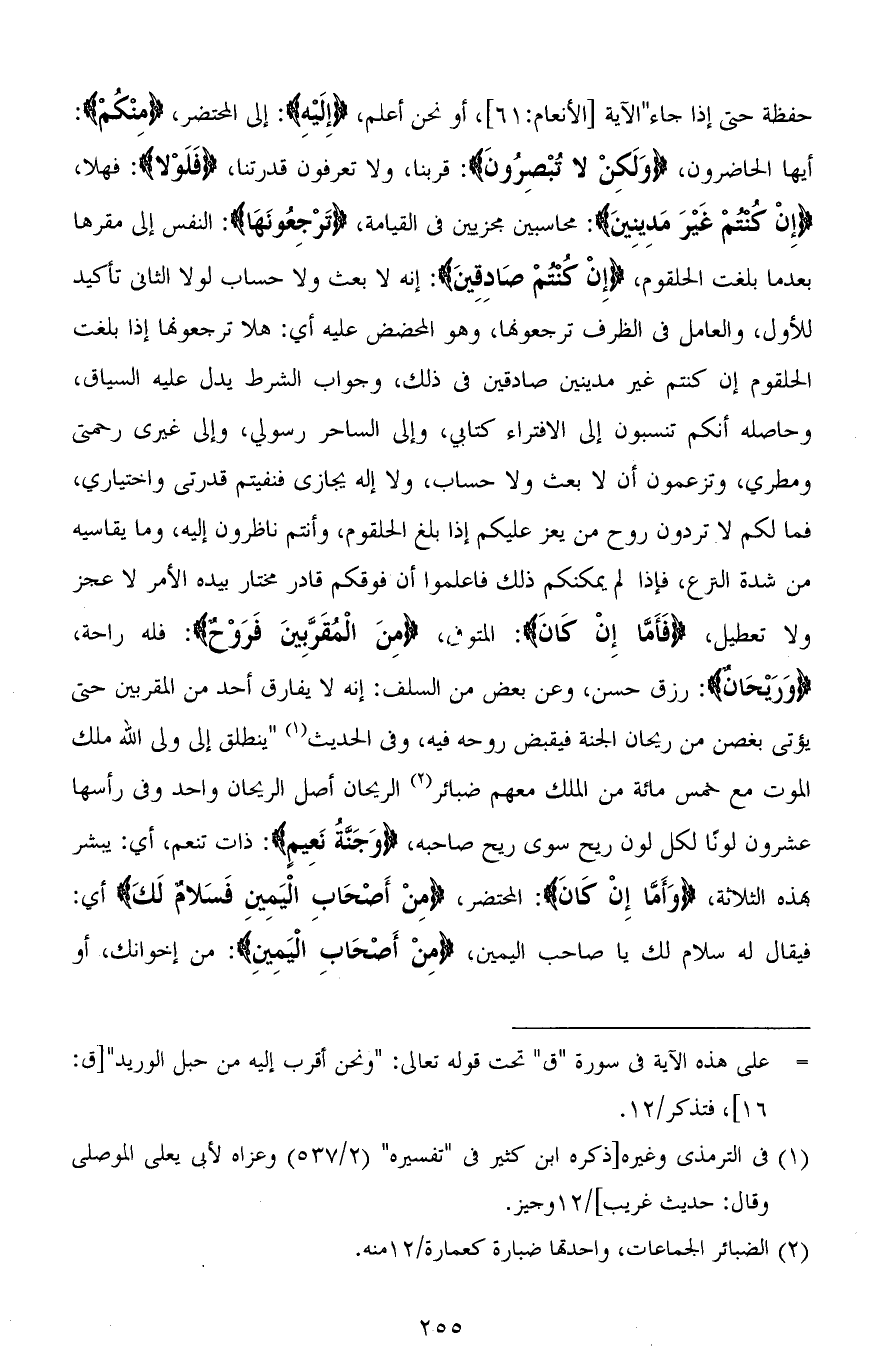 حفظة حتى إذا جاء"الآية [الأنعام:٦١]، أو نحن أعلم، ﴿إِلَيْهِ﴾: إلى المحتضر، ﴿مِنْكُمْ﴾:
أيها الحاضرون، ﴿وَلَكِنْ لا تُبْصِرُونَ﴾: قربنا، ولا تعرفون قدرتنا، ﴿فَلَوْلا﴾: فهلا،
﴿إِنْ كُنْتُمْ غَيْرَ مَدِينِينَ﴾: محاسبين مجزيين فى القيامة، ﴿تَرْجِعُونَهَا﴾: النفس إلى مقرها
بعدما بلغت الحلقوم، ﴿إِنْ كُنْتُمْ صَادِقِينَ﴾: إنه لا بعث ولا حساب لولا الثانى تأكيد
للأول، والعامل فى الظرف ترجعونها، وهو المحضض عليه أي: هلا ترجعونها إذا بلغت
الحلقوم إن كنتم غير مدينين صادقين فى ذلك، وجواب الشرط يدل عليه السياق،
وحاصله أنكم تنسبون إلى الافتراء كتابي، وإلى الساحر رسولي، وإلى غيرى رحمتى
ومطري، وتزعمون أن لا بعث ولا حساب، ولا إله يجازى فنفيتم قدرتى واختياري،
فما لكم لا تردون روح من يعز عليكم إذا بلغ الحلقوم، وأنتم ناظرون إليه، وما يقاسيه
من شدة النزع، فإذا لم يمكنكم ذلك فاعلموا أن فوقكم قادر مختار بيده الأمر لا عجز
ولا تعطيل، ﴿فَأَمَّا إِنْ كَانَ﴾: المتوفى، ﴿مِنَ الْمُقَرَّبِينَ فَرَوْحٌ﴾: فله راحة،
﴿وَرَيْحَانٌ﴾: رزق حسن، وعن بعض من السلف: إنه لا يفارق أحد من المقربين حتى
يؤتى بغصن من ريحان الجنة فيقبض روحه فيه، وفى الحديث(١) "ينطلق إلى ولى الله ملك
الموت مع خمس مائة من الملك معهم ضبائر(٢) الريحان أصل الريحان واحد وفى رأسها
عشرون لونًا لكل لون ريح سوى ريح صاحبه، ﴿وَجَنَّةُ نَعِيمٍ﴾: ذات تنعم، أي: يبشر
بهذه الثلاثة، ﴿وَأَمَّا إِنْ كَانَ﴾: المحتضر، ﴿مِنْ أَصْحَابِ الْيَمِينِ فَسَلامٌ لَكَ﴾ أي:
فيقال له سلام لك يا صاحب اليمين، ﴿مِنْ أَصْحَابِ الْيَمِينِ﴾: من إخوانك، أو
= على هذه الآية فى سورة "ق" تحت قوله تعالى: "ونحن أقرب إليه من حبل الوريد"[ق:
١٦]، فتذكر/١٢.
(١) فى الترمذى وغيره[ذكره ابن كثير فى "تفسيره" (٥٣٧/٢) وعزاه لأبى يعلى الموصلى
وقال: حديث غريب]/١٢وجيز.
(٢) الضبائر الجماعات، واحدتها ضبارة كعمارة/١٢منه.
٢٥٥